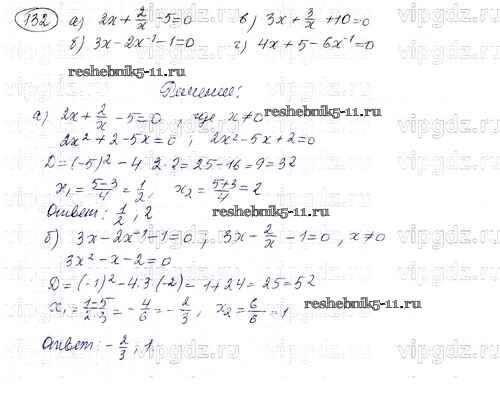 132 а) 2x + 2/x - 5 = 0 в) 3x + 3/x + 10 = 0
б) 3x - 2x⁻¹ - 1 = 0 г) 4x + 5 - 6x⁻¹ = 0
reshebnik5-11.ru
Решение:
а) 2x + 2/x - 5 = 0 , где x ≠ 0
reshebnik5-11.ru
2x² + 2 - 5x = 0 ; 2x² - 5x + 2 = 0
D = (-5)² - 4·2·2 = 25 - 16 = 9 = 3²
x₁ = (5-3)/4 = 1/2, x₂ = (5+3)/4 = 2
Ответ: 1/2 ; 2
reshebnik5-11.ru
б) 3x - 2x⁻¹ - 1 = 0 ; 3x - 2/x - 1 = 0 , x ≠ 0
3x² - x - 2 = 0
D = (-1)² - 4·3·(-2) = 1 + 24 = 25 = 5²
x₁ = (1-5)/(2·3) = -4/6 = -2/3 , x₂ = 6/6 = 1
reshebnik5-11.ru
Ответ: -2/3 ; 1
vipgdz.ru